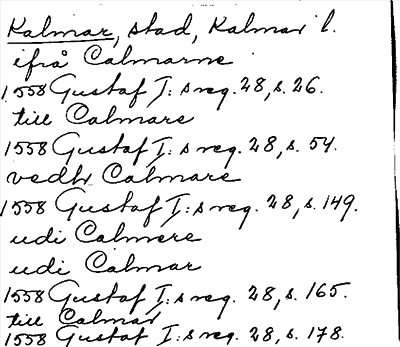 Kalmar, stad, Kalmar l.
ifrå Calmarne
1558 Gustaf I:s reg. 28, s. 26.
till Calmare
1558 Gustaf I:s reg. 28, s. 54.
vedh Calmare
1558 Gustaf I:s reg. 28, s. 149.
udi Calmere
udi Calmar
1558 Gustaf I:s reg. 28, s. 165.
till Calmar
1558 Gustaf I:s reg. 28, s. 178.